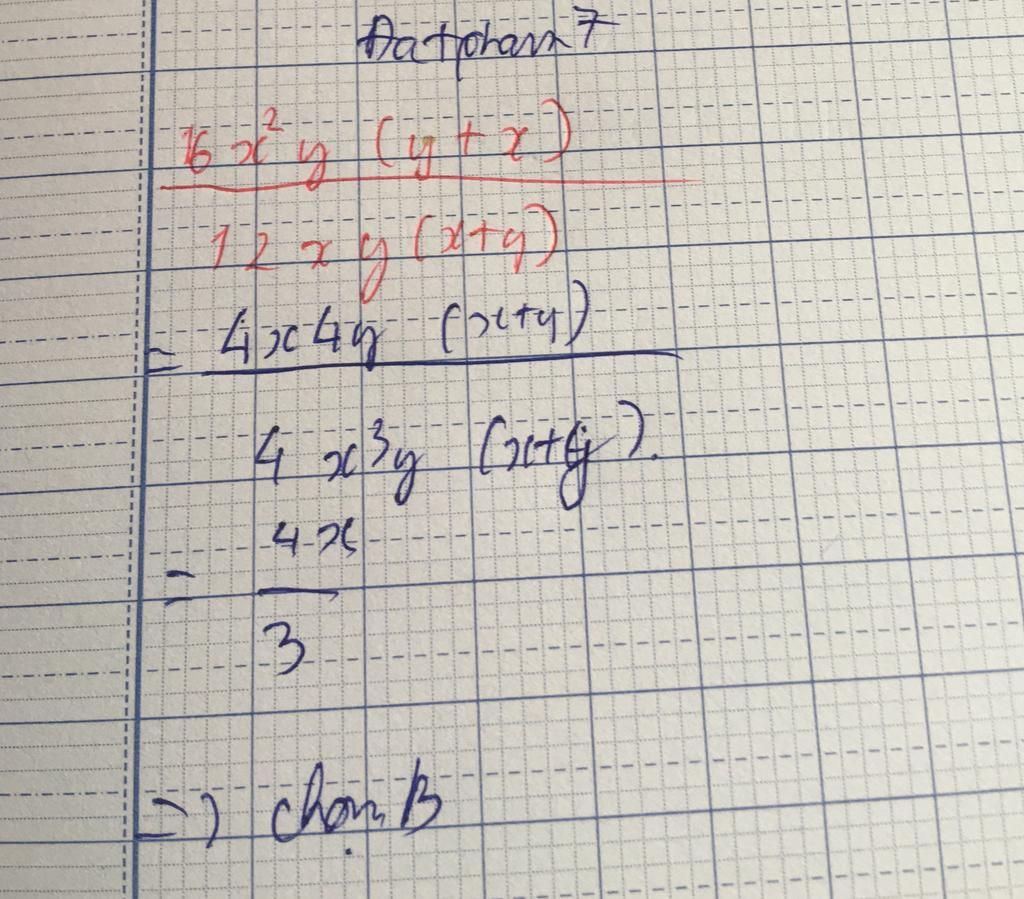 Datpham7
16x²y (y+x)
12xy(x+y)
= 4x4y (x+y)
4x3y (x+y).
= 4x
3
=> chọn B